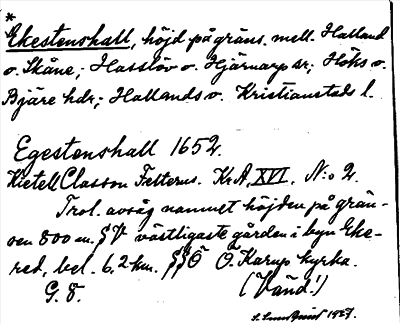 *
Ekestenshall, höjd på gräns. mell. Halland
o. Skåne; Hasslöv o. Hjärnarp sr; Höks o.
Bjäre hdr; Hallands o. Kristianstads l.
Egestenshall 1652.
Kietell Classon Felterus. KrA, XVI, N:o 2.
Trol. avsåg namnet höjden på grän-
sen 800 m. § V västligaste gården i byn Eke-
red, bel. 6,2 km. §§ Ö Ö. Karup kyrka.
G. 8. (Vänd!)
1927.